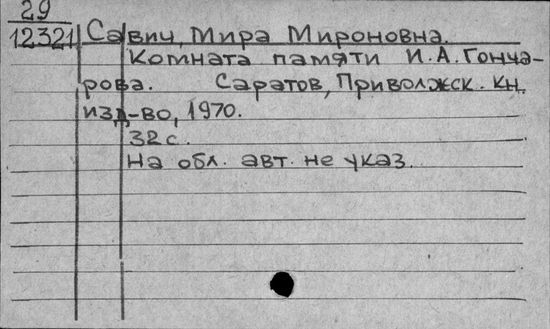 29
12321 Савич, Мира Мироновна.
Комната памяти И.А. Гонча-
рова. Саратов, Приволжск. кн.
изд-во, 1970.
32 с.
На обл. авт. не указ.